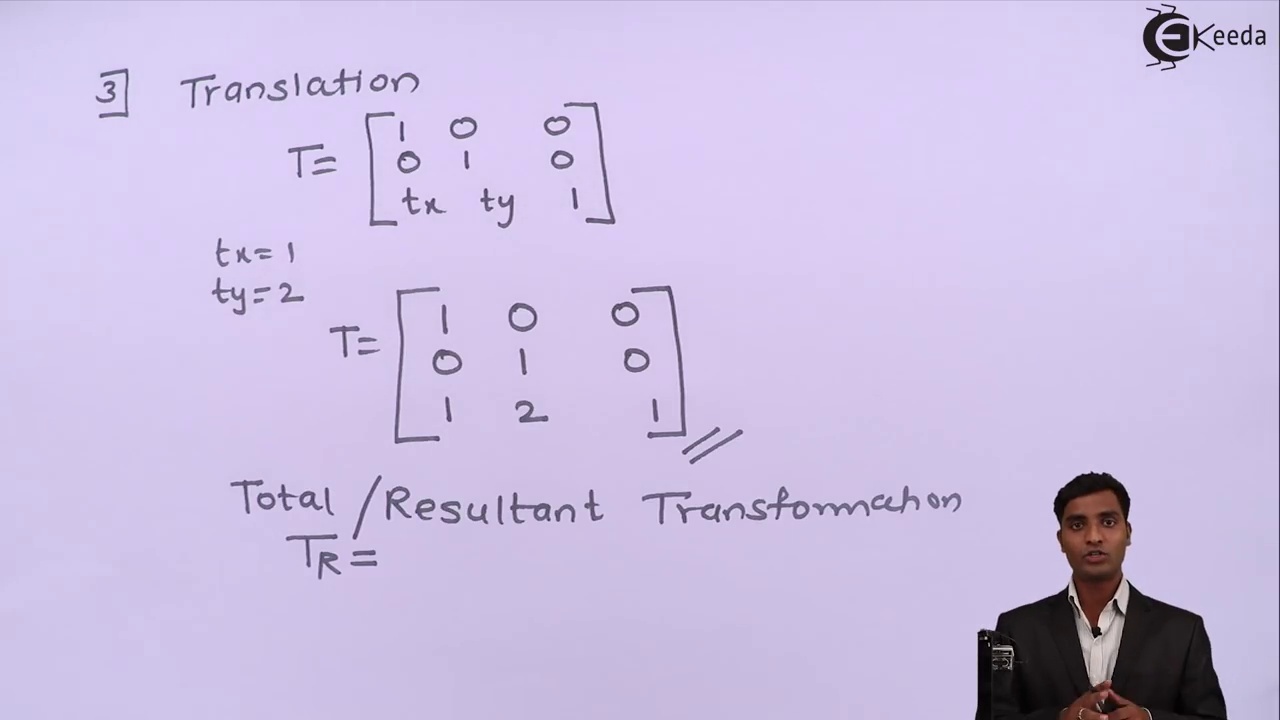 EKeeda
3] Translation
T= [ 1 0 0
0 1 0
tx ty 1 ]
tx=1
ty=2
T= [ 1 0 0
0 1 0
1 2 1 ]
Total / Resultant Transformation
TR=